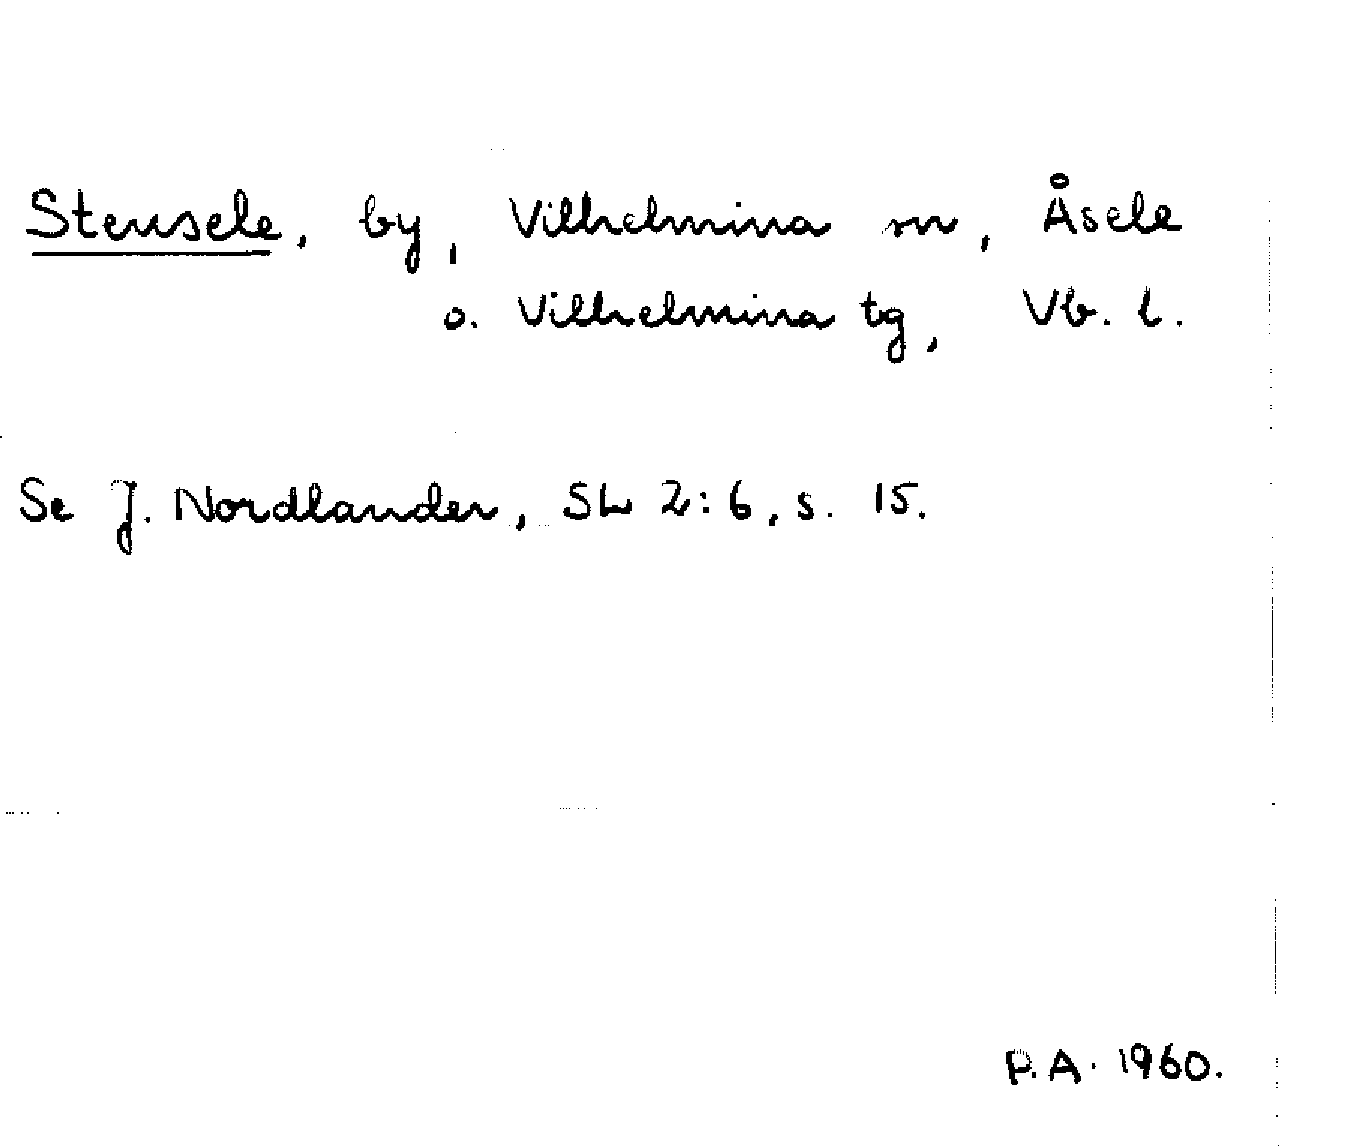 Stensele, by, Vilhelmina sn, Åsele
o. Vilhelmina tg, Vb. l.
Se J. Nordlander, SL 2:6, s. 15.
P.A. 1960.